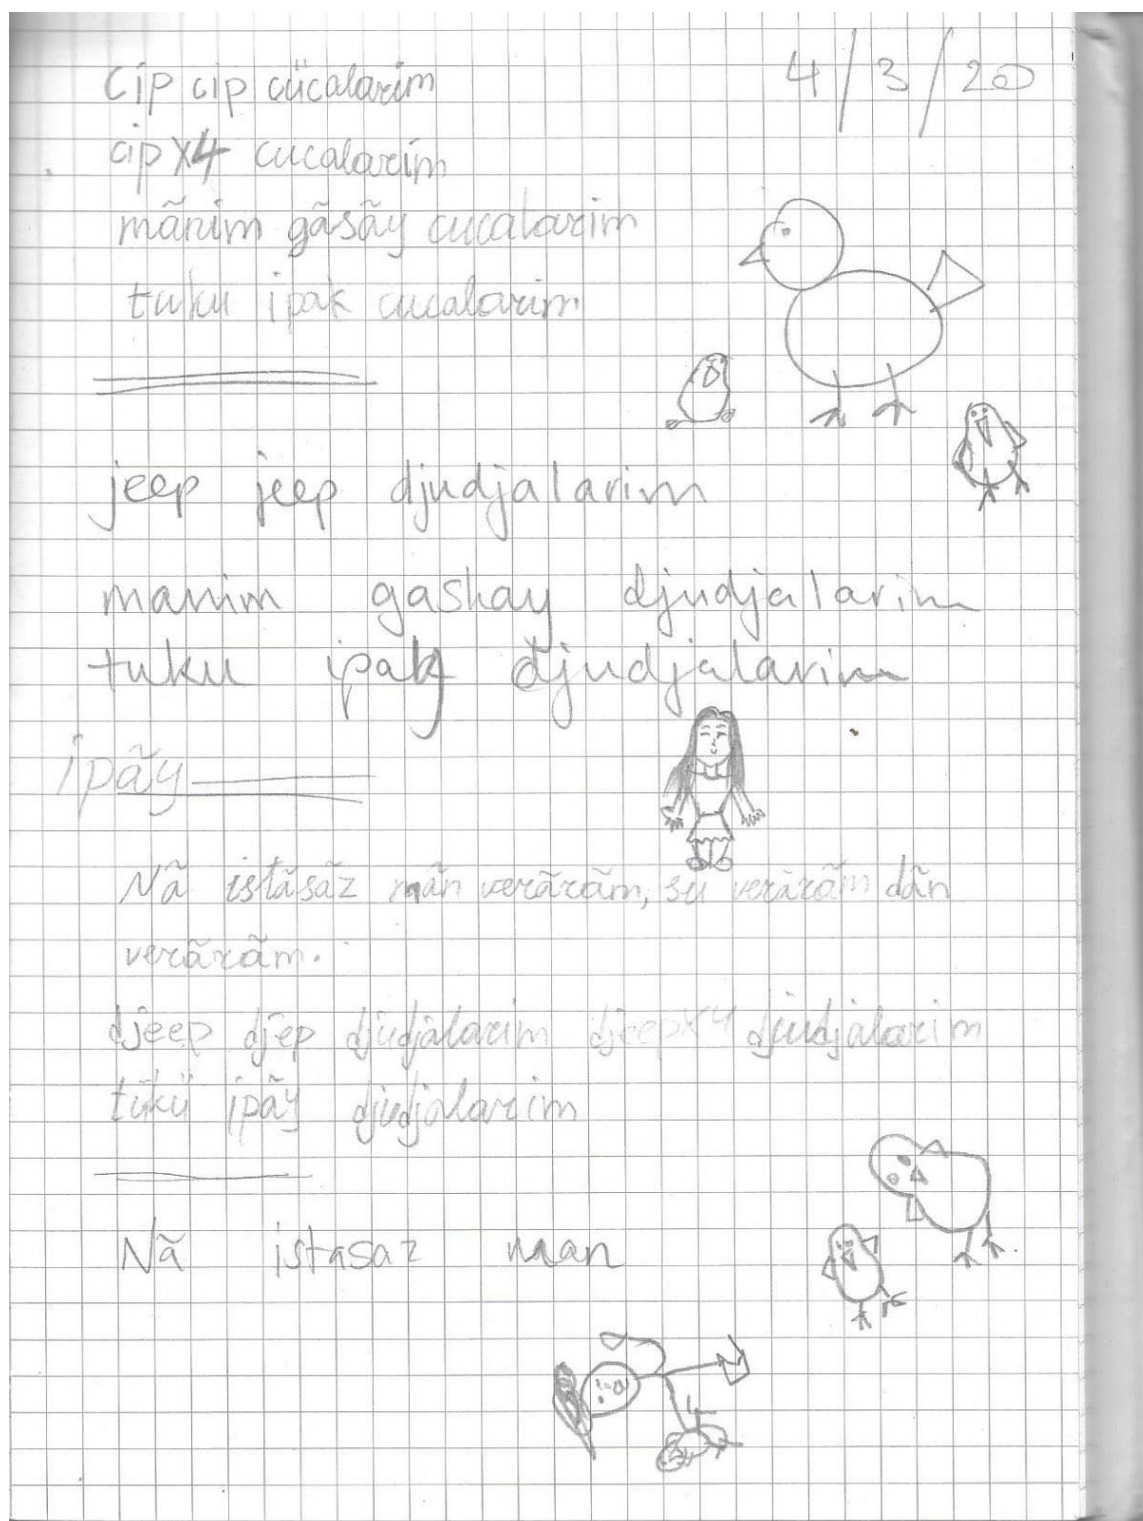 cip cip cücalarim 4/3/20
cip x4 cucalarim
mãnim gãsãy cucalarim
tuku ipak cucalarim
jeep jeep djudjalarim
manim gashay djudjalarim
tuku ipak djudjalarim
ipãy
Nã istãsãz mãn verãrãm, su verãrãm dãn
verãrãm.
djeep djep djudjalarim djeepx4 djudjalarim
tükü ipãy djudjalarim
Nã istasaz man